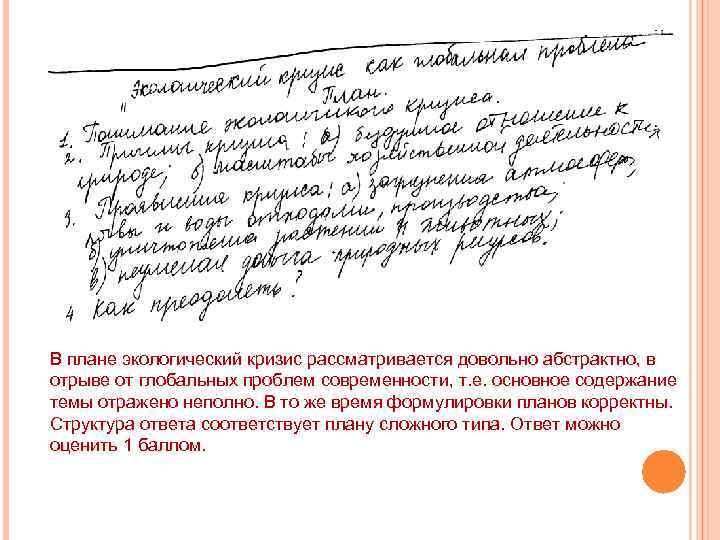 "Экологический кризис как глобальная проблема
План.
1. Понимание экологического кризиса.
2. Причины кризиса: а) бездумное отношение к
природе; б) масштабы хозяйственной деятельности
3. Проявления кризиса: а) загрязнения атмосферы,
почвы и воды отходами производства;
б) уничтожения растений и животных;
в) неумелая добыча природных ресурсов.
4 Как преодолеть?
В плане экологический кризис рассматривается довольно абстрактно, в
отрыве от глобальных проблем современности, т.е. основное содержание
темы отражено неполно. В то же время формулировки планов корректны.
Структура ответа соответствует плану сложного типа. Ответ можно
оценить 1 баллом.